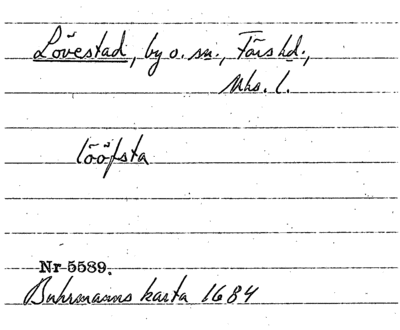 Lövestad, by o. sn., Färs hd.,
Mhs. l.
lööfsta
Nr 5589.
Buhrmanns karta 1684